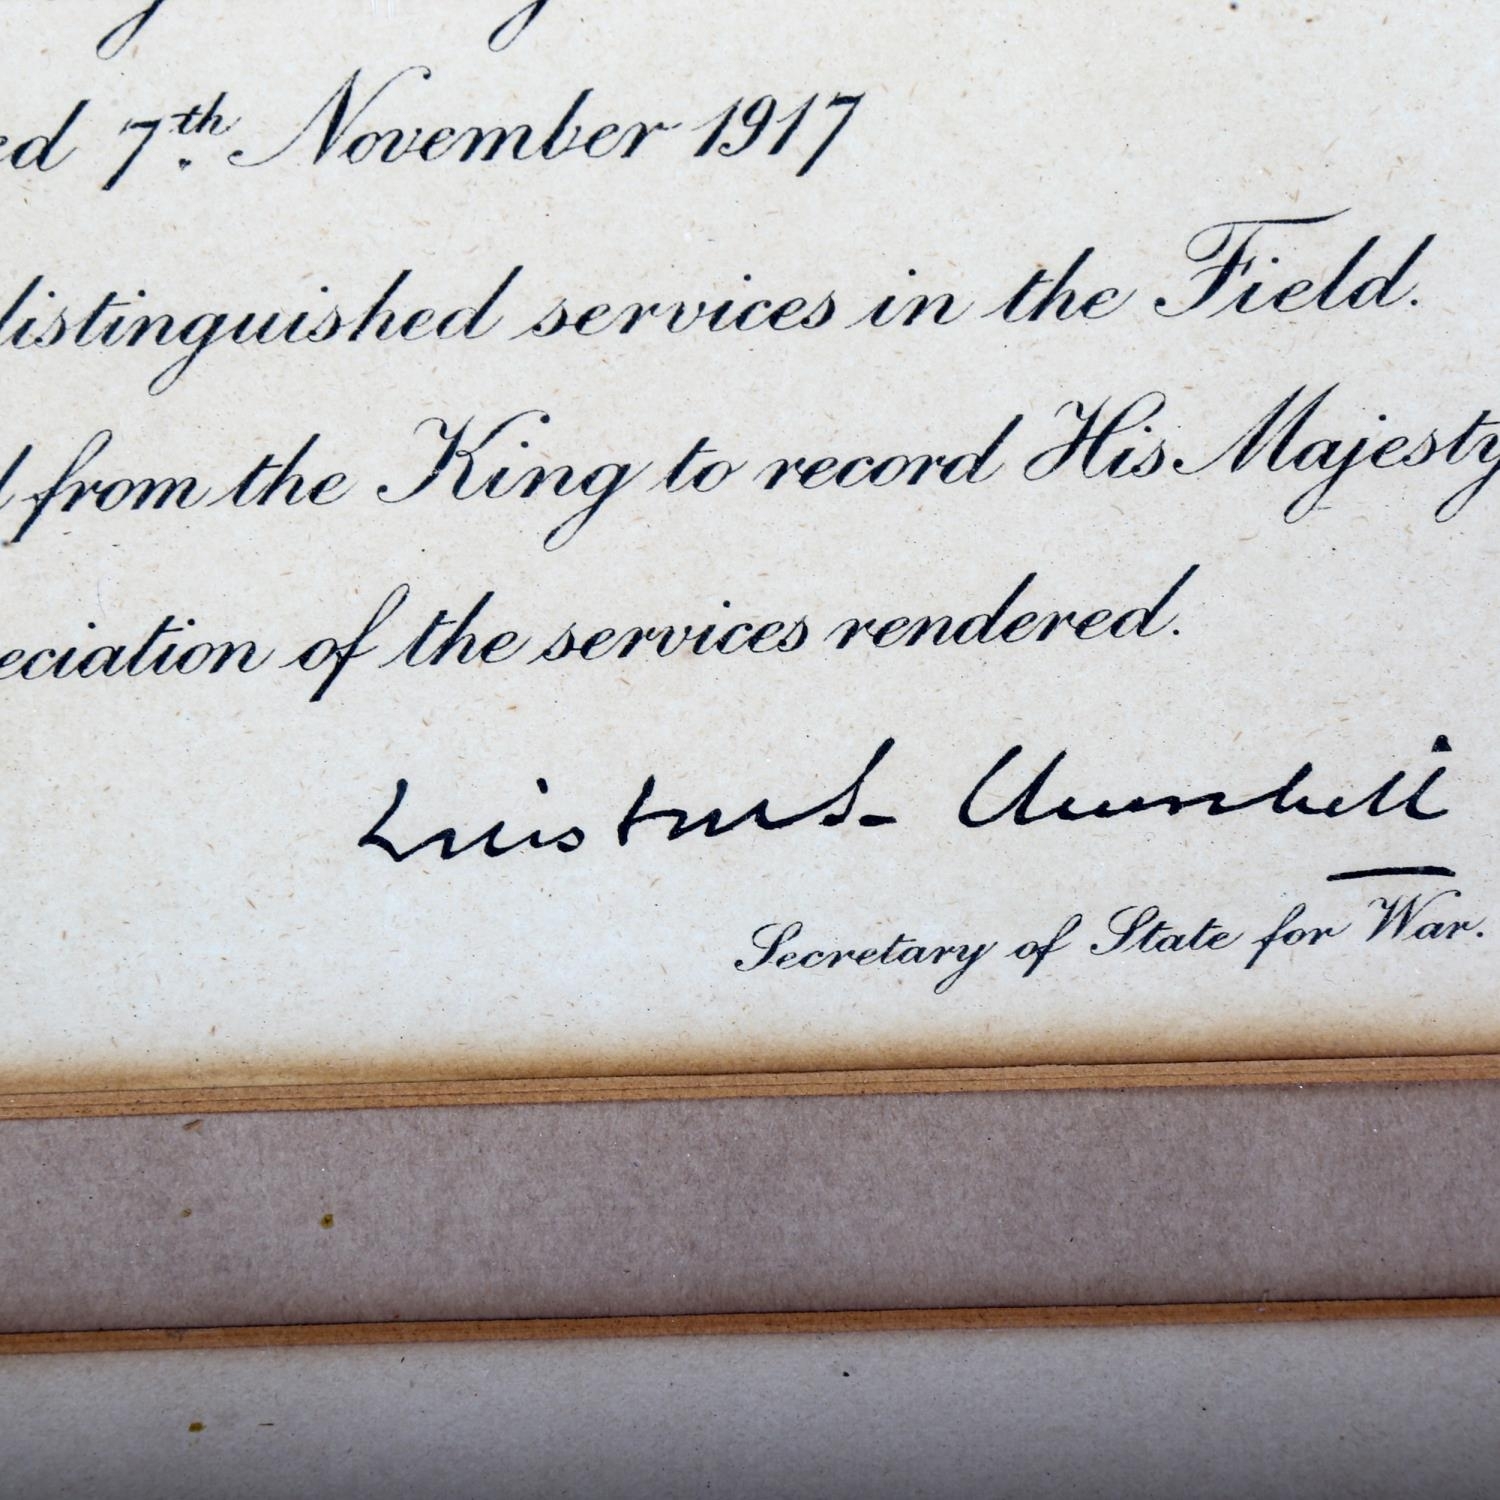 ed 7th. November 1917
distinguished services in the Field.
d from the King to record His Majesty
eciation of the services rendered.
Winston S. Churchill
Secretary of State for War.